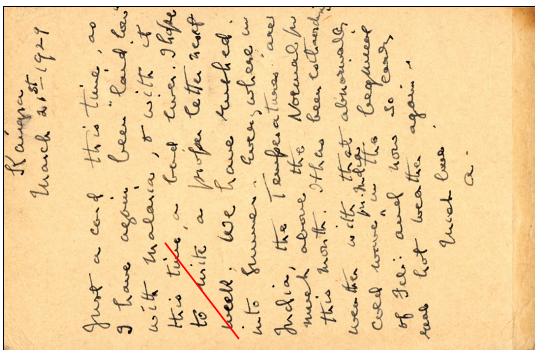 Kangra
March 21st 1929
Just a card this time, as
I have again been "laid low"
with Malaria, & with it
this time, a bad liver. I hope
to write a proper letter next
week. We have rushed
into Summer. Everywhere in
India, the Temperatures are
much above the Normal for
this month. It has been extraordinary
weather with that abnormally
cold wave in India the beginning
of Feb: and now so early,
real hot weather again.
Much love
a.